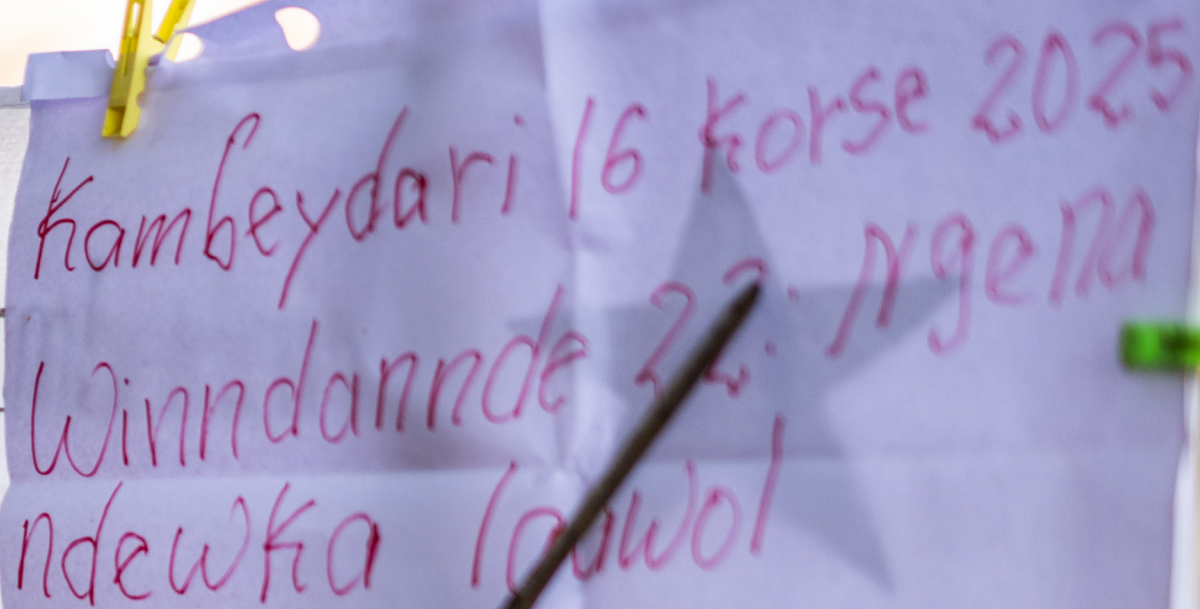 Kambeydari 16 Korse 2025
Winndannde 22: Ngena
ndewka laawol